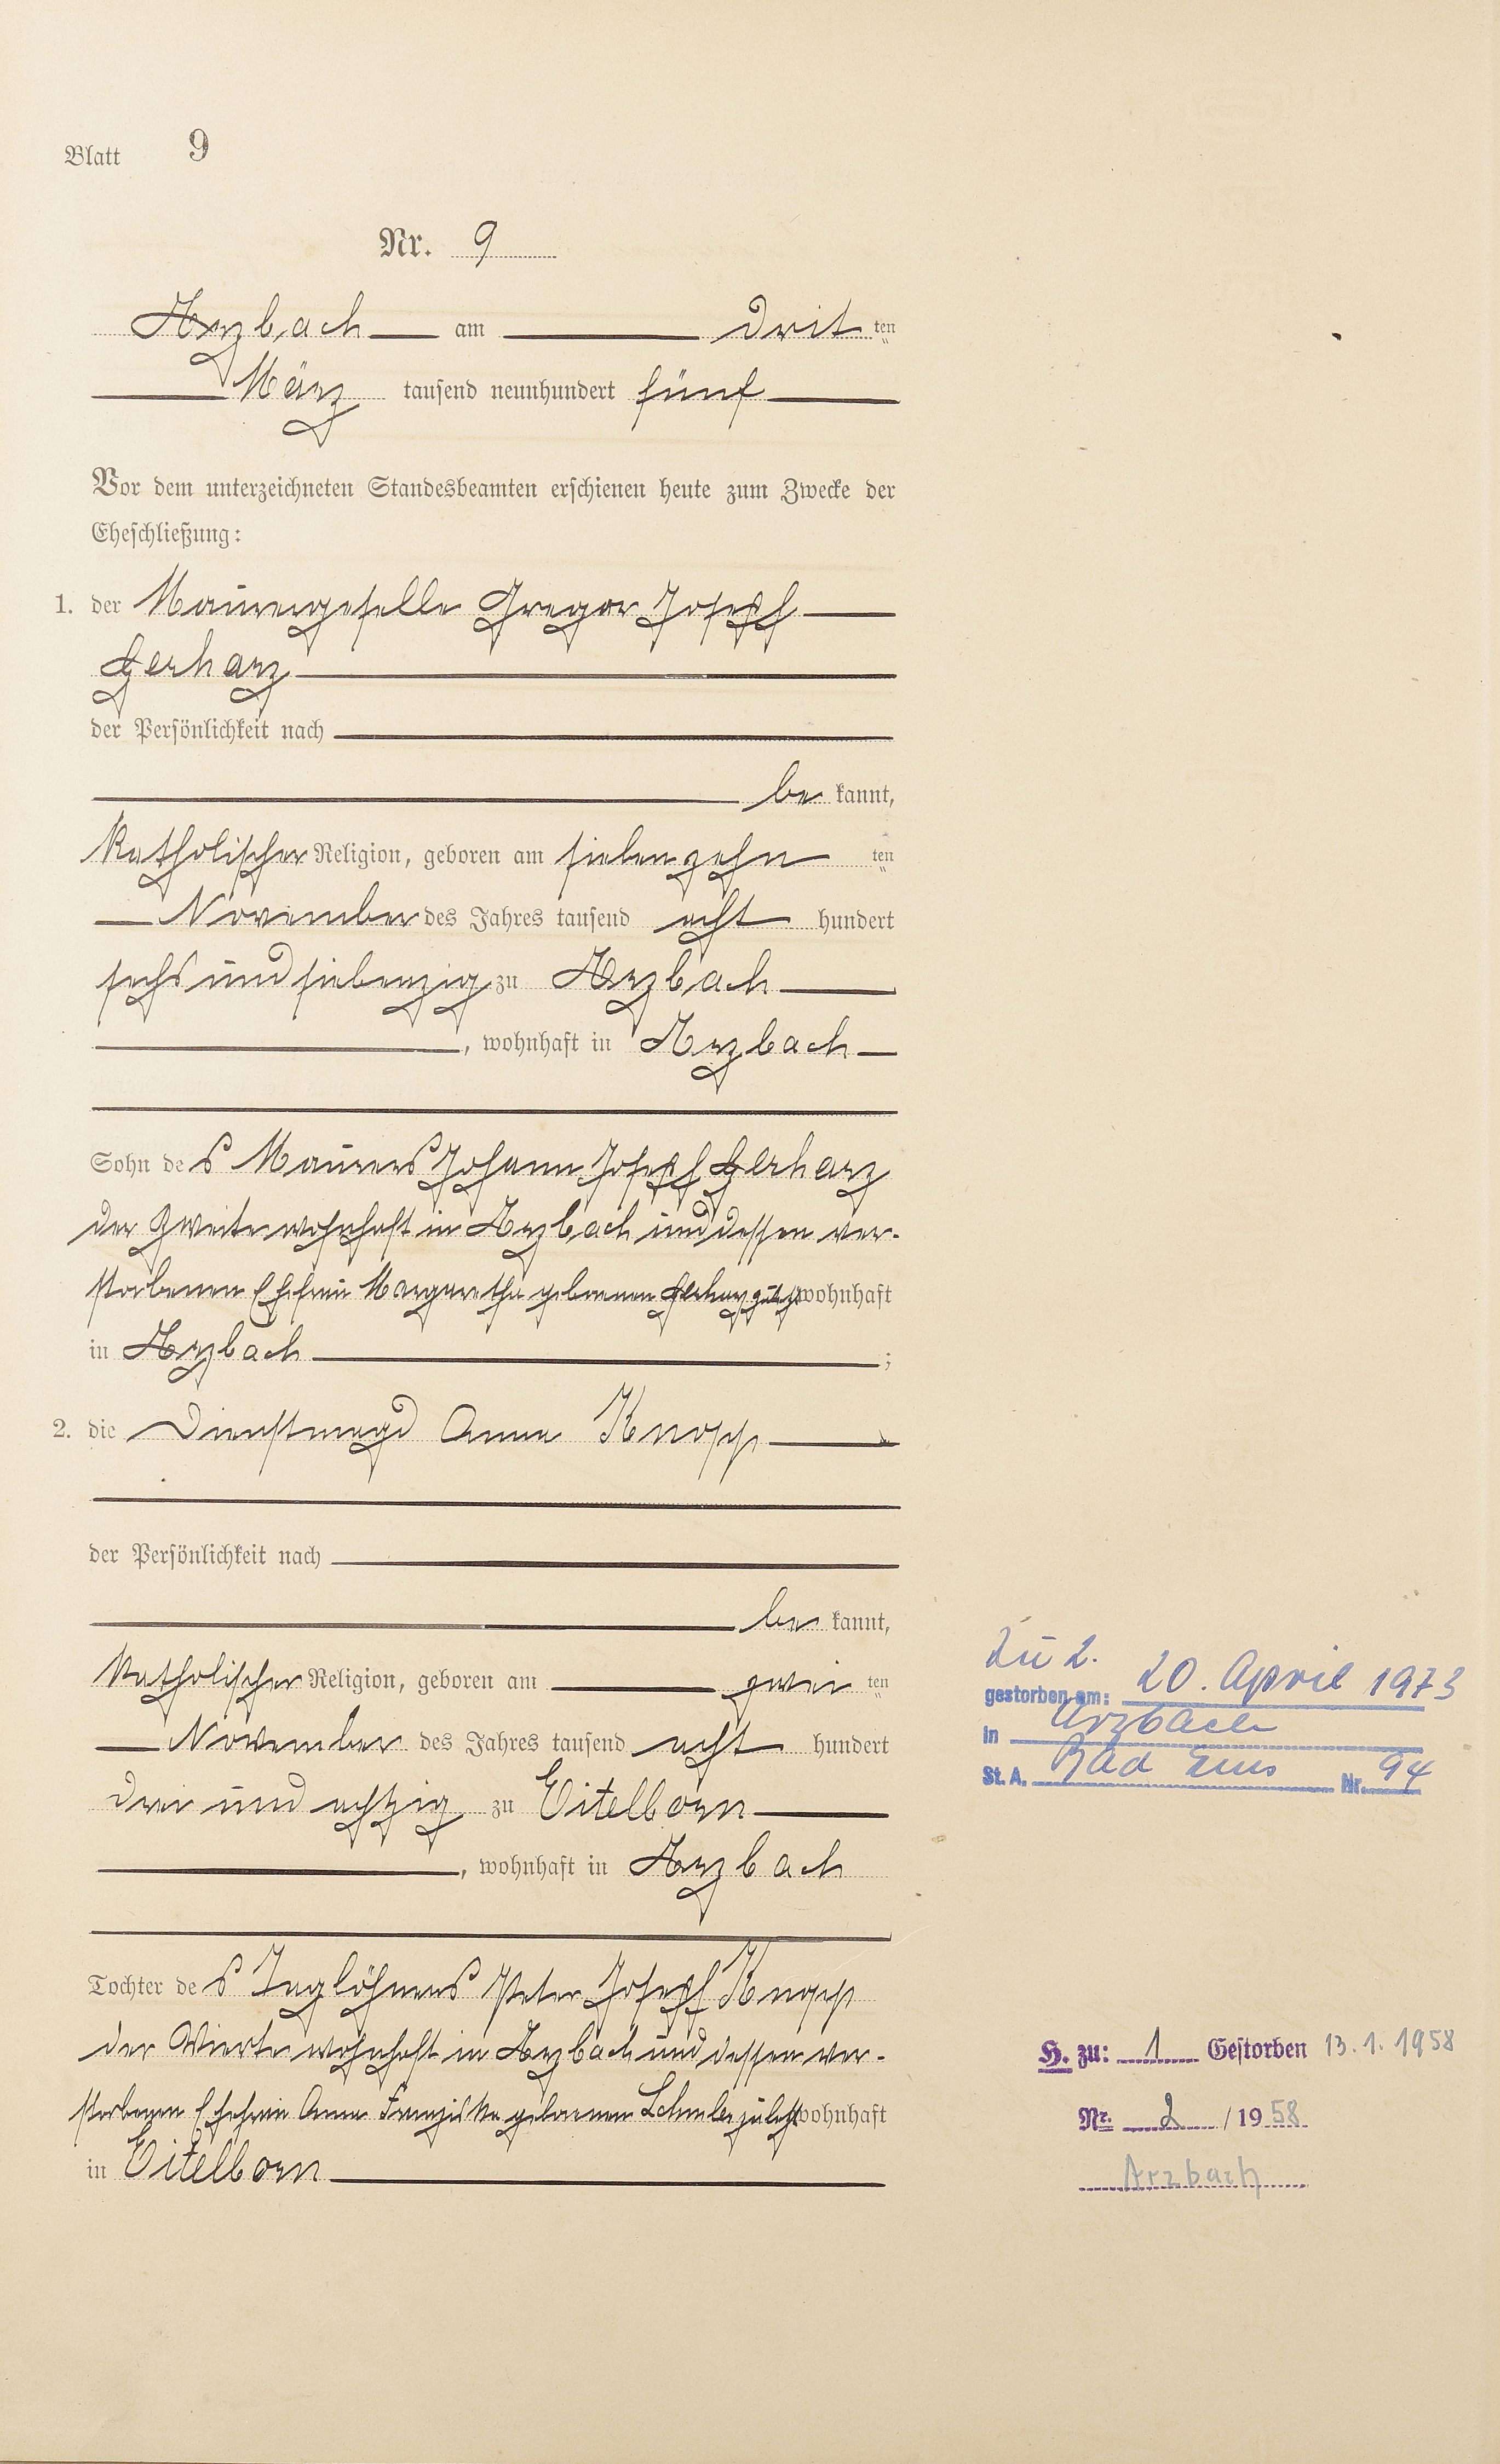 Blatt 9
Nr. 9
Arzbach am dritten
März tausend neunhundert fünf
Vor dem unterzeichneten Standesbeamten erschienen heute zum Zwecke der
Eheschließung:
1. der Maurergeselle Gregor Joseph
Gerharz
der Persönlichkeit nach
be kannt,
katholischer Religion, geboren am siebenzehn ten
November des Jahres tausend acht hundert
sechs und siebenzig zu Arzbach
, wohnhaft in Arzbach
Sohn des Maurers Johann Joseph Gerharz
der Zweite wohnhaft in Arzbach und dessen ver-
storbenen Ehefrau Margaretha geborenen Gerharz zuletzt wohnhaft
in Arzbach ;
2. die Dienstmagd Anna Knopp
der Persönlichkeit nach
be kannt,
katholischer Religion, geboren am zwei ten
November des Jahres tausend acht hundert
drei und achtzig zu Eitelborn
, wohnhaft in Arzbach
Tochter des Taglöhners Peter Joseph Knopp
der Vierte wohnhaft in Arzbach und dessen ver-
storbenen Ehefrau Anna Franziska geborenen zuletzt wohnhaft
in Eitelborn
Zu 2.
gestorben am: 20. April 1973
in Arzbach
St. A. Bad Ems Nr. 94
H. zu: 1 Gestorben 13.1.1958
Nr. 2 /1958
Arzbach